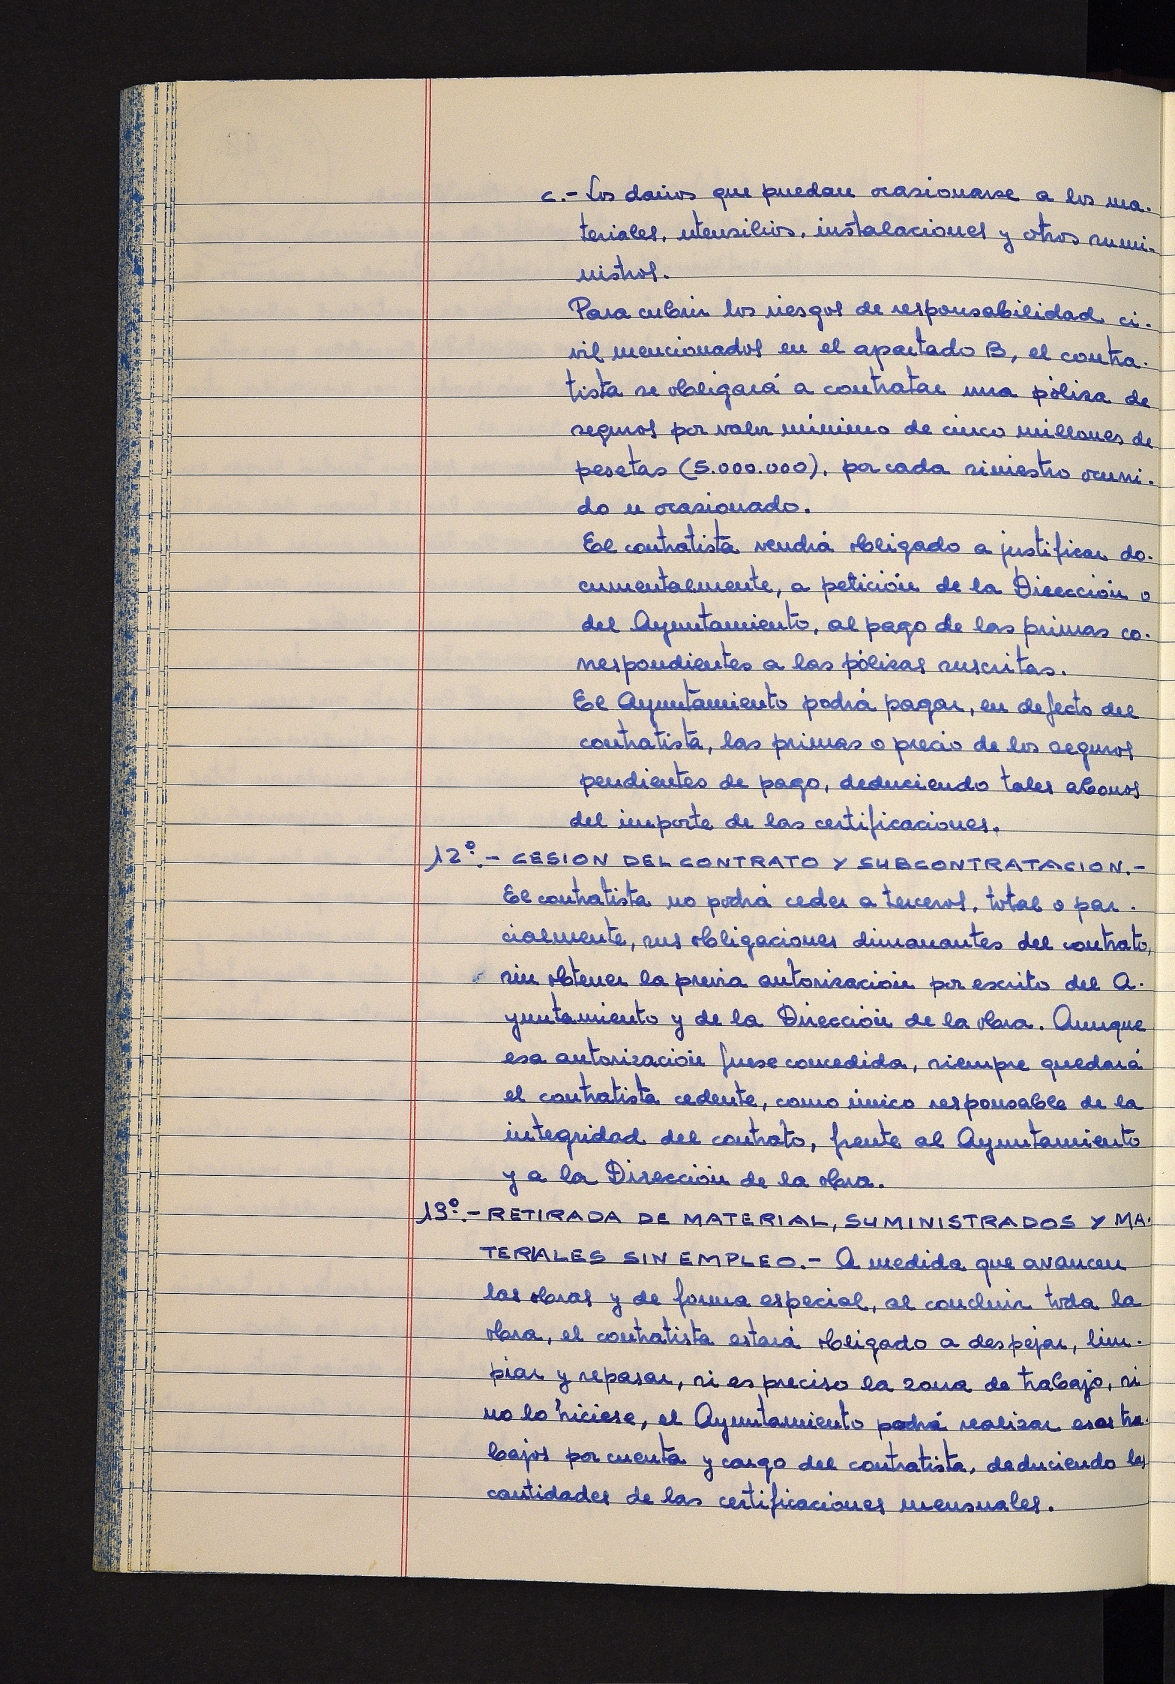 c.- Los daños que puedan ocasionarse a los ma-
teriales, utensilios, instalaciones y otros sumi-
nistros.
Para cubrir los riesgos de responsabilidad ci-
vil mencionados en el apartado B, el contra-
tista se obligará a contratar una póliza de
seguros por valor mínimo de cinco millones de
pesetas (5.000.000), por cada siniestro ocurri-
do u ocasionado.
El contratista vendrá obligado a justificar do-
cumentalmente, a petición de la Dirección o
del Ayuntamiento, al pago de las primas co-
rrespondientes a las pólizas suscritas.
El Ayuntamiento podrá pagar, en defecto del
contratista, las primas o precio de los seguros
pendientes de pago, deduciendo tales abonos
del importe de las certificaciones.
12º.- CESION DEL CONTRATO Y SUBCONTRATACION.-
El contratista no podrá ceder a terceros, total o par-
cialmente, sus obligaciones dimanantes del contrato,
sin obtener la previa autorización por escrito del A-
yuntamiento y de la Dirección de la obra. Aunque
esa autorización fuese concedida, siempre quedará
el contratista cedente, como único responsable de la
integridad del contrato, frente al Ayuntamiento
y a la Dirección de la obra.
13º.- RETIRADA DE MATERIAL, SUMINISTRADOS Y MA-
TERIALES SIN EMPLEO.- A medida que avancen
las obras y de forma especial, al concluir toda la
obra, el contratista estará obligado a despejar, lim-
piar y repasar, si es preciso la zona de trabajo, si
no lo hiciese, el Ayuntamiento podrá realizar esos tra-
bajos por cuenta y cargo del contratista, deduciendo las
cantidades de las certificaciones mensuales.